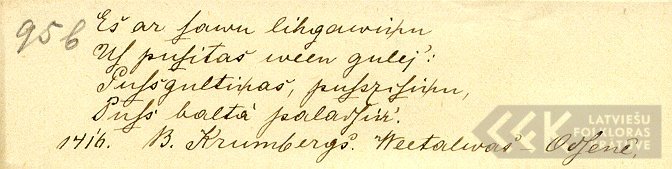 956 Eſs ar ſawu lihgawiņu
Uſ puſitas ween gulej':
Puſsgultiņas, puſszisiņu,
Puſs baltà paladſiņ'.
1416. B. Krumbergs. Weetalwas - Odſenê.
LATVIEŠU
FOLKLORAS
KRĀTUVE